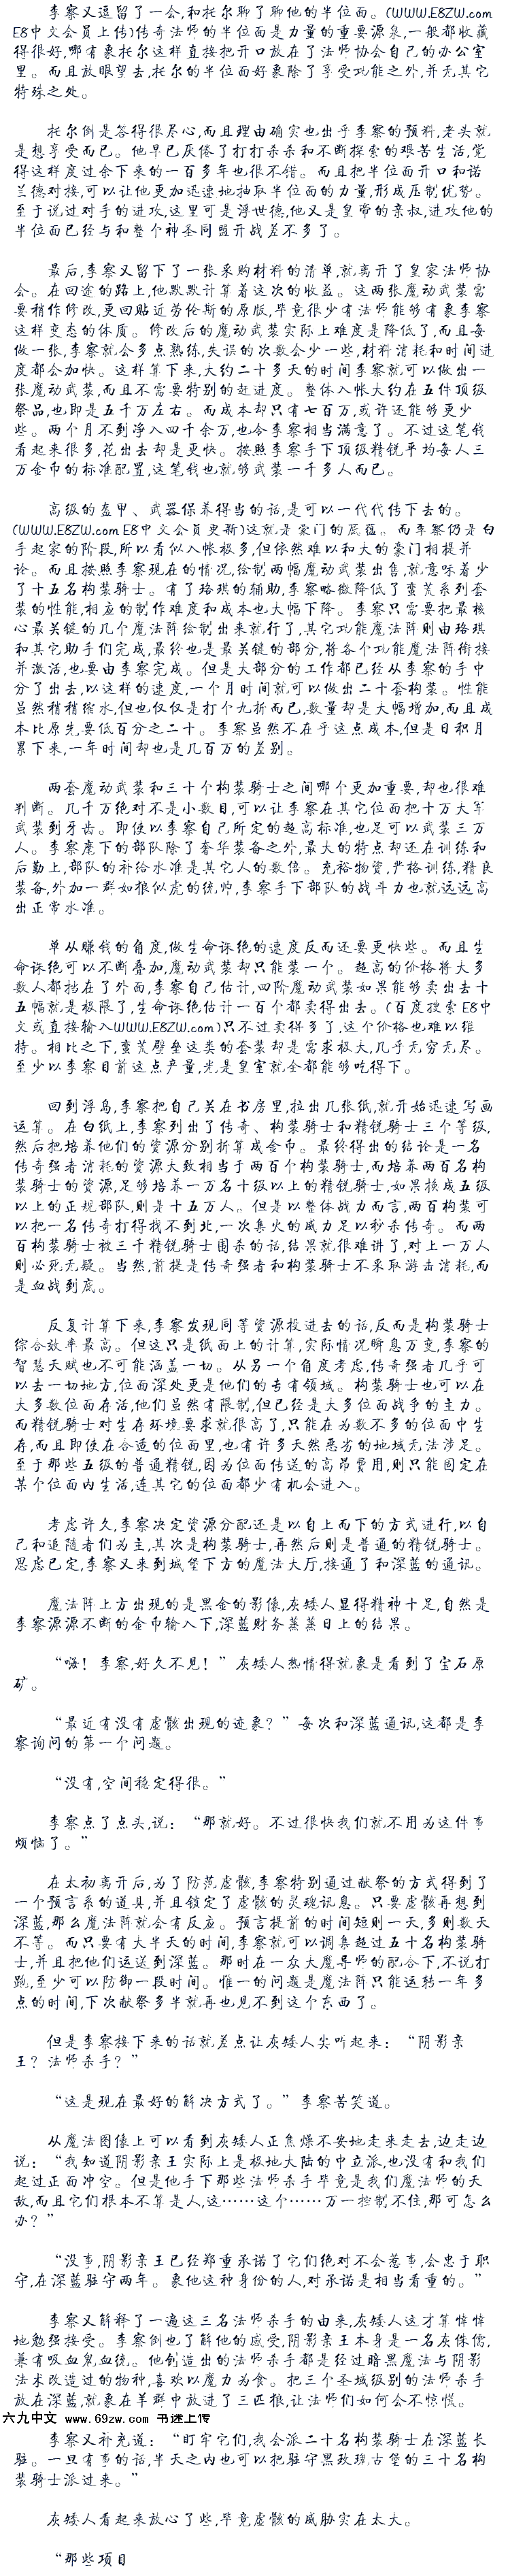 李察又逗留了一会,和托尔聊了聊他的半位面。(WWW.E8ZW.com
E8中文会员上传)传奇法师的半位面是力量的重要源泉,一般都收藏
得很好,哪有象托尔这样直接把开口放在了法师协会自己的办公室
里。而且放眼望去,托尔的半位面好象除了享受功能之外,并无其它
特殊之处。
托尔倒是答得很尽心,而且理由确实也出乎李察的预料,老头就
是想享受而已。他早已厌倦了打打杀杀和不断探索的艰苦生活,觉
得这样度过余下来的一百多年也很不错。而且把半位面开口和诺
兰德对接,可以让他更加迅速地抽取半位面的力量,形成压制优势。
至于说过对手的进攻,这里可是浮世德,他又是皇帝的亲叔,进攻他的
半位面已经与和整个神圣同盟开战差不多了。
最后,李察又留下了一张采购材料的清单,就离开了皇家法师协
会。在回途的路上,他默默计算着这次的收益。这两张魔动武装需
要稍作修改,更回贴近劳伦斯的原版,毕竟很少有法师能够有象李察
这样变态的体质。修改后的魔动武装实际上难度是降低了,而且每
做一张,李察就会多点熟练,失误的次数会少一些,材料消耗和时间进
度都会加快。这样算下来,大约二十多天的时间李察就可以做出一
张魔动武装,而且不需要特别的赶进度。整体入帐大约在五件顶级
祭品,也即是五千万左右。而成本却只有七百万,或许还能够更少
些。两个月不到净入四千余万,也令李察相当满意了。不过这笔钱
看起来很多,花出去却是更快。按照李察手下顶级精锐平均每人三
万金币的标准配置,这笔钱也就够武装一千多人而已。
高级的盔甲、武器保养得当的话,是可以一代代传下去的。
(WWW.E8ZW.com E8中文会员更新)这就是豪门的底蕴。而李察仍是白
手起家的阶段,所以看似入帐极多,但依然难以和大的豪门相提并
论。而且按照李察现在的情况,绘制两幅魔动武装出售,就意味着少
了十五名构装骑士。有了珞琪的辅助,李察略微降低了蛮荒系列套
装的性能,相应的制作难度和成本也大幅下降。李察只需要把最核
心最关键的几个魔法阵绘制出来就行了,其它功能魔法阵则由珞琪
和其它助手们完成,最终也是最关键的部分,将各个功能魔法阵衔接
并激活,也要由李察完成。但是大部分的工作都已经从李察的手中
分了出去,以这样的速度,一个月时间就可以做出二十套构装。性能
虽然稍稍缩水,但也仅仅是打个九折而已,数量却是大幅增加,而且成
本比原先要低百分之二十。李察虽然不在乎这点成本,但是日积月
累下来,一年时间却也是几百万的差别。
两套魔动武装和三十个构装骑士之间哪个更加重要,却也很难
判断。几千万绝对不是小数目,可以让李察在其它位面把十万大军
武装到牙齿。即使以李察自己所定的超高标准,也足可以武装三万
人。李察麾下的部队除了奢华装备之外,最大的特点却还在训练和
后勤上,部队的补给水准是其它人的数倍。充裕物资,严格训练,精良
装备,外加一群如狼似虎的统帅,李察手下部队的战斗力也就远远高
出正常水准。
单从赚钱的角度,做生命诛绝的速度反而还要更快些。而且生
命诛绝可以不断叠加,魔动武装却只能装一个。超高的价格将大多
数人都挡在了外面,李察自己估计,四阶魔动武装如果能够卖出去十
五幅就是极限了,生命诛绝估计一百个都卖得出去。(百度搜索 E8中
文或直接输入WWW.E8ZW.com)只不过卖得多了,这个价格也难以维
持。相比之下,蛮荒壁垒这类的套装却是需求极大,几乎无穷无尽。
至少以李察目前这点产量,光是皇室就全都能够吃得下。
回到浮岛,李察把自己关在书房里,拉出几张纸,就开始迅速写画
运算。在白纸上,李察列出了传奇、构装骑士和精锐骑士三个等级,
然后把培养他们的资源分别折算成金币。最终得出的结论是一名
传奇强者消耗的资源大致相当于两百个构装骑士,而培养两百名构
装骑士的资源,足够培养一万名十级以上的精锐骑士,如果换成五级
以上的正规部队,则是十五万人。但是以整体战力而言,两百构装可
以把一名传奇打得找不到北,一次集火的威力足以秒杀传奇。而两
百构装骑士被三千精锐骑士围杀的话,结果就很难讲了,对上一万人
则必死无疑。当然,前提是传奇强者和构装骑士不采取游击消耗,而
是血战到底。
反复计算下来,李察发现同等资源投进去的话,反而是构装骑士
综合效率最高。但这只是纸面上的计算,实际情况瞬息万变,李察的
智慧天赋也不可能涵盖一切。从另一个角度考虑,传奇强者几乎可
以去一切地方,位面深处更是他们的专有领域。构装骑士也可以在
大多数位面存活,他们虽然有限制,但已经是大多位面战争的主力。
而精锐骑士对生存环境要求就很高了,只能在为数不多的位面中生
存,而且即使在合适的位面里,也有许多天然恶劣的地域无法涉足。
至于那些五级的普通精锐,因为位面传送的高昂费用,则只能固定在
某个位面内生活,连其它的位面都少有机会进入。
考虑许久,李察决定资源分配还是以自上而下的方式进行,以自
己和追随者们为主,其次是构装骑士,再然后则是普通的精锐骑士。
思虑已定,李察又来到城堡下方的魔法大厅,接通了和深蓝的通讯。
魔法阵上方出现的是黑金的影像,灰矮人显得精神十足,自然是
李察源源不断的金币输入下,深蓝财务蒸蒸日上的结果。
“嗨！李察,好久不见！”灰矮人热情得就象是看到了宝石原
矿。
“最近有没有虚骸出现的迹象？”每次和深蓝通讯,这都是李
察询问的第一个问题。
“没有,空间稳定得很。”
李察点了点头,说：“那就好。不过很快我们就不用为这件事
烦恼了。”
在太初离开后,为了防范虚骸,李察特别通过献祭的方式得到了
一个预言系的道具,并且锁定了虚骸的灵魂讯息。只要虚骸再想到
深蓝,那么魔法阵就会有反应。预言提前的时间短则一天,多则数天
不等。而只要有大半天的时间,李察就可以调集超过五十名构装骑
士,并且把他们运送到深蓝。那时在一众大魔导师的配合下,不说打
跑,至少可以防御一段时间。惟一的问题是魔法阵只能运转一年多
点的时间,下次献祭多半就再也见不到这个东西了。
但是李察接下来的话就差点让灰矮人尖听起来：“阴影亲
王？法师杀手？”
“这是现在最好的解决方式了。”李察苦笑道。
从魔法图像上可以看到灰矮人正焦燥不安地走来走去,边走边
说：“我知道阴影亲王实际上是极地大陆的中立派,也没有和我们
起过正面冲空。但是他手下那些法师杀手毕竟是我们魔法师的天
敌,而且它们根本不算是人,这……这个……万一控制不住,那可怎么
办？”
“没事,阴影亲王已经郑重承诺了它们绝对不会惹事,会忠于职
守,在深蓝驻守两年。象他这种身份的人,对承诺是相当看重的。”
李察又解释了一遍这三名法师杀手的由来,灰矮人这才算悻悻
地勉强接受。李察倒也了解他的感受,阴影亲王本身是一名灰侏儒,
兼有吸血鬼血统。他创造出的法师杀手都是经过暗黑魔法与阴影
法术改造过的物种,喜欢以魔力为食。把三个圣域级别的法师杀手
放在深蓝,就象在羊群中放进了三匹狼,让法师们如何会不惊慌。
六九中文 www.69zw.com 书迷上传
李察又补充道：“盯牢它们,我会派二十名构装骑士在深蓝长
驻。一旦有事的话,半天之内也可以把驻守黑玫瑰古堡的三十名构
装骑士派过来。”
灰矮人看起来放心了些,毕竟虚骸的威胁实在太大。
“那些项目